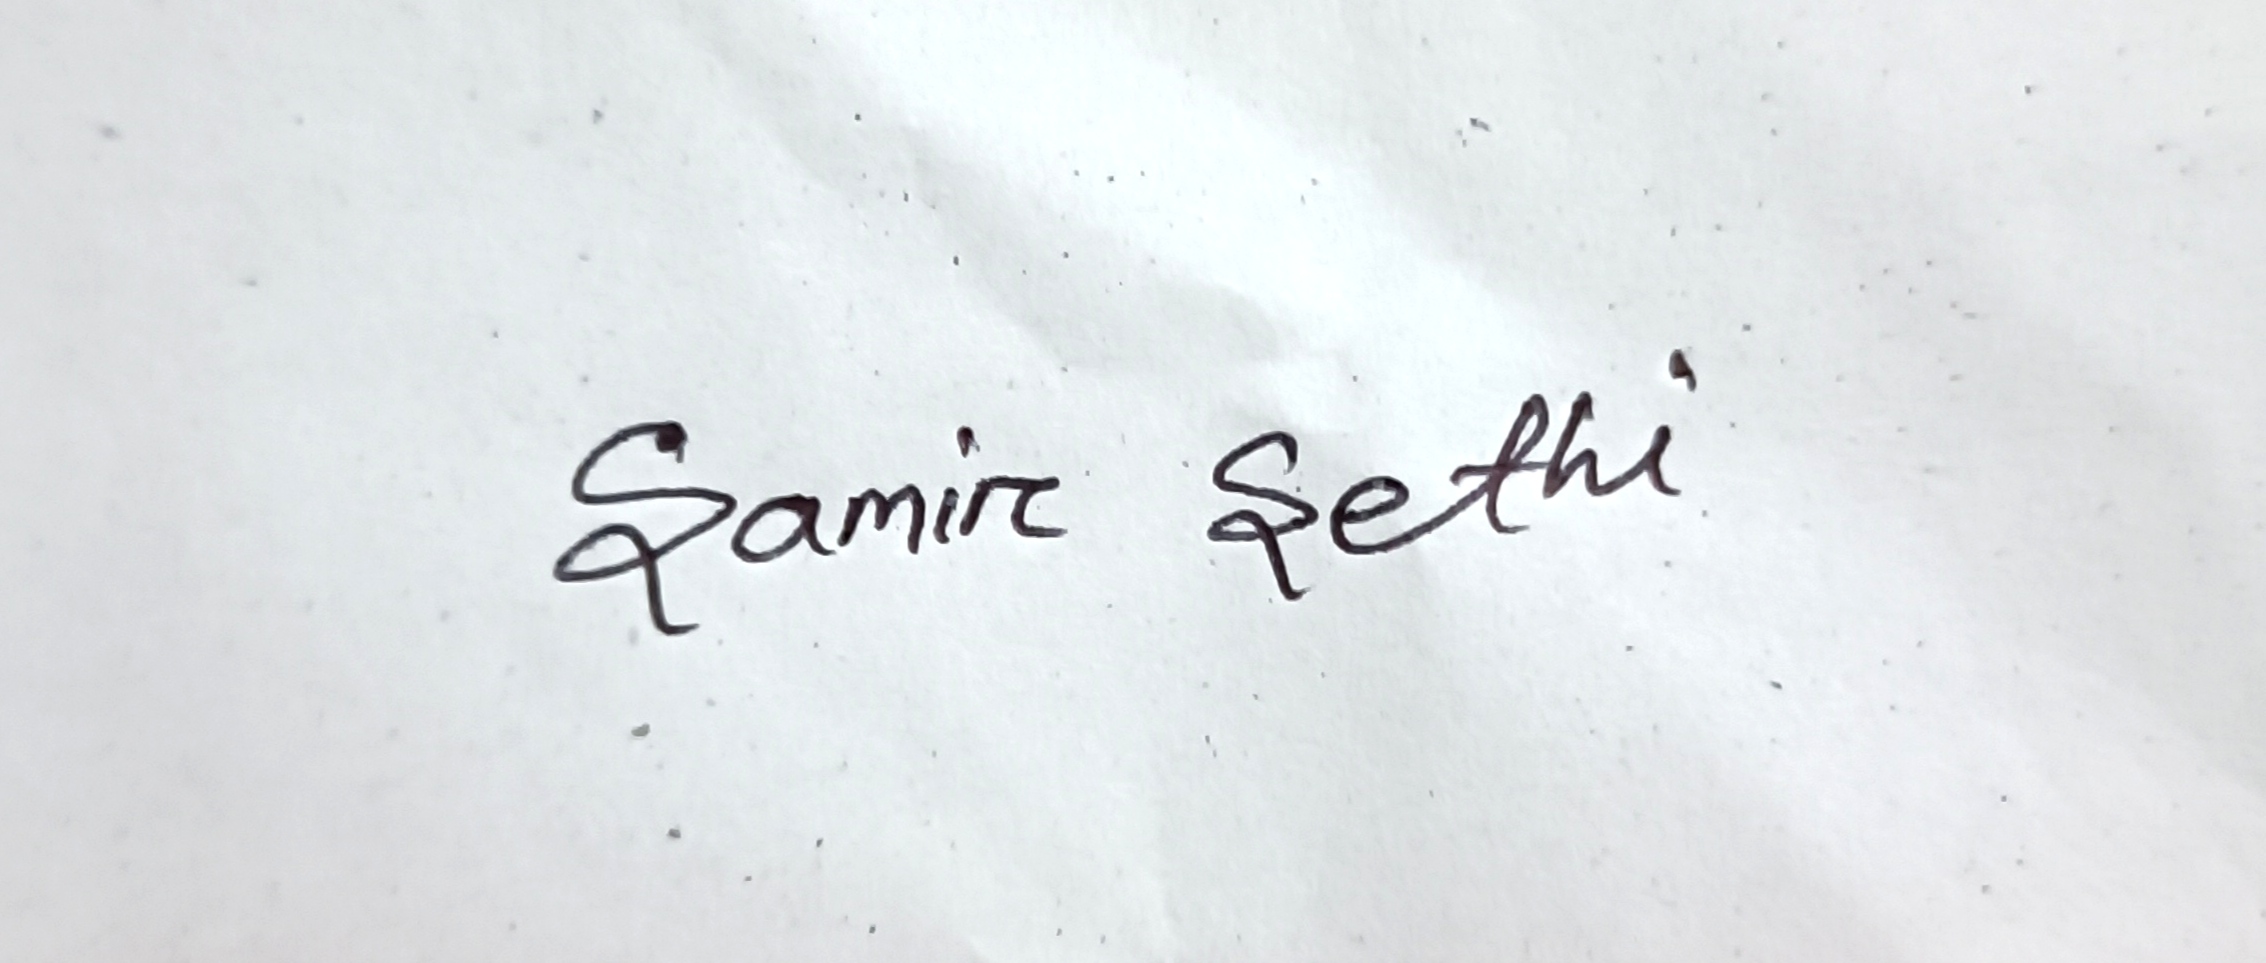 Samir Sethi